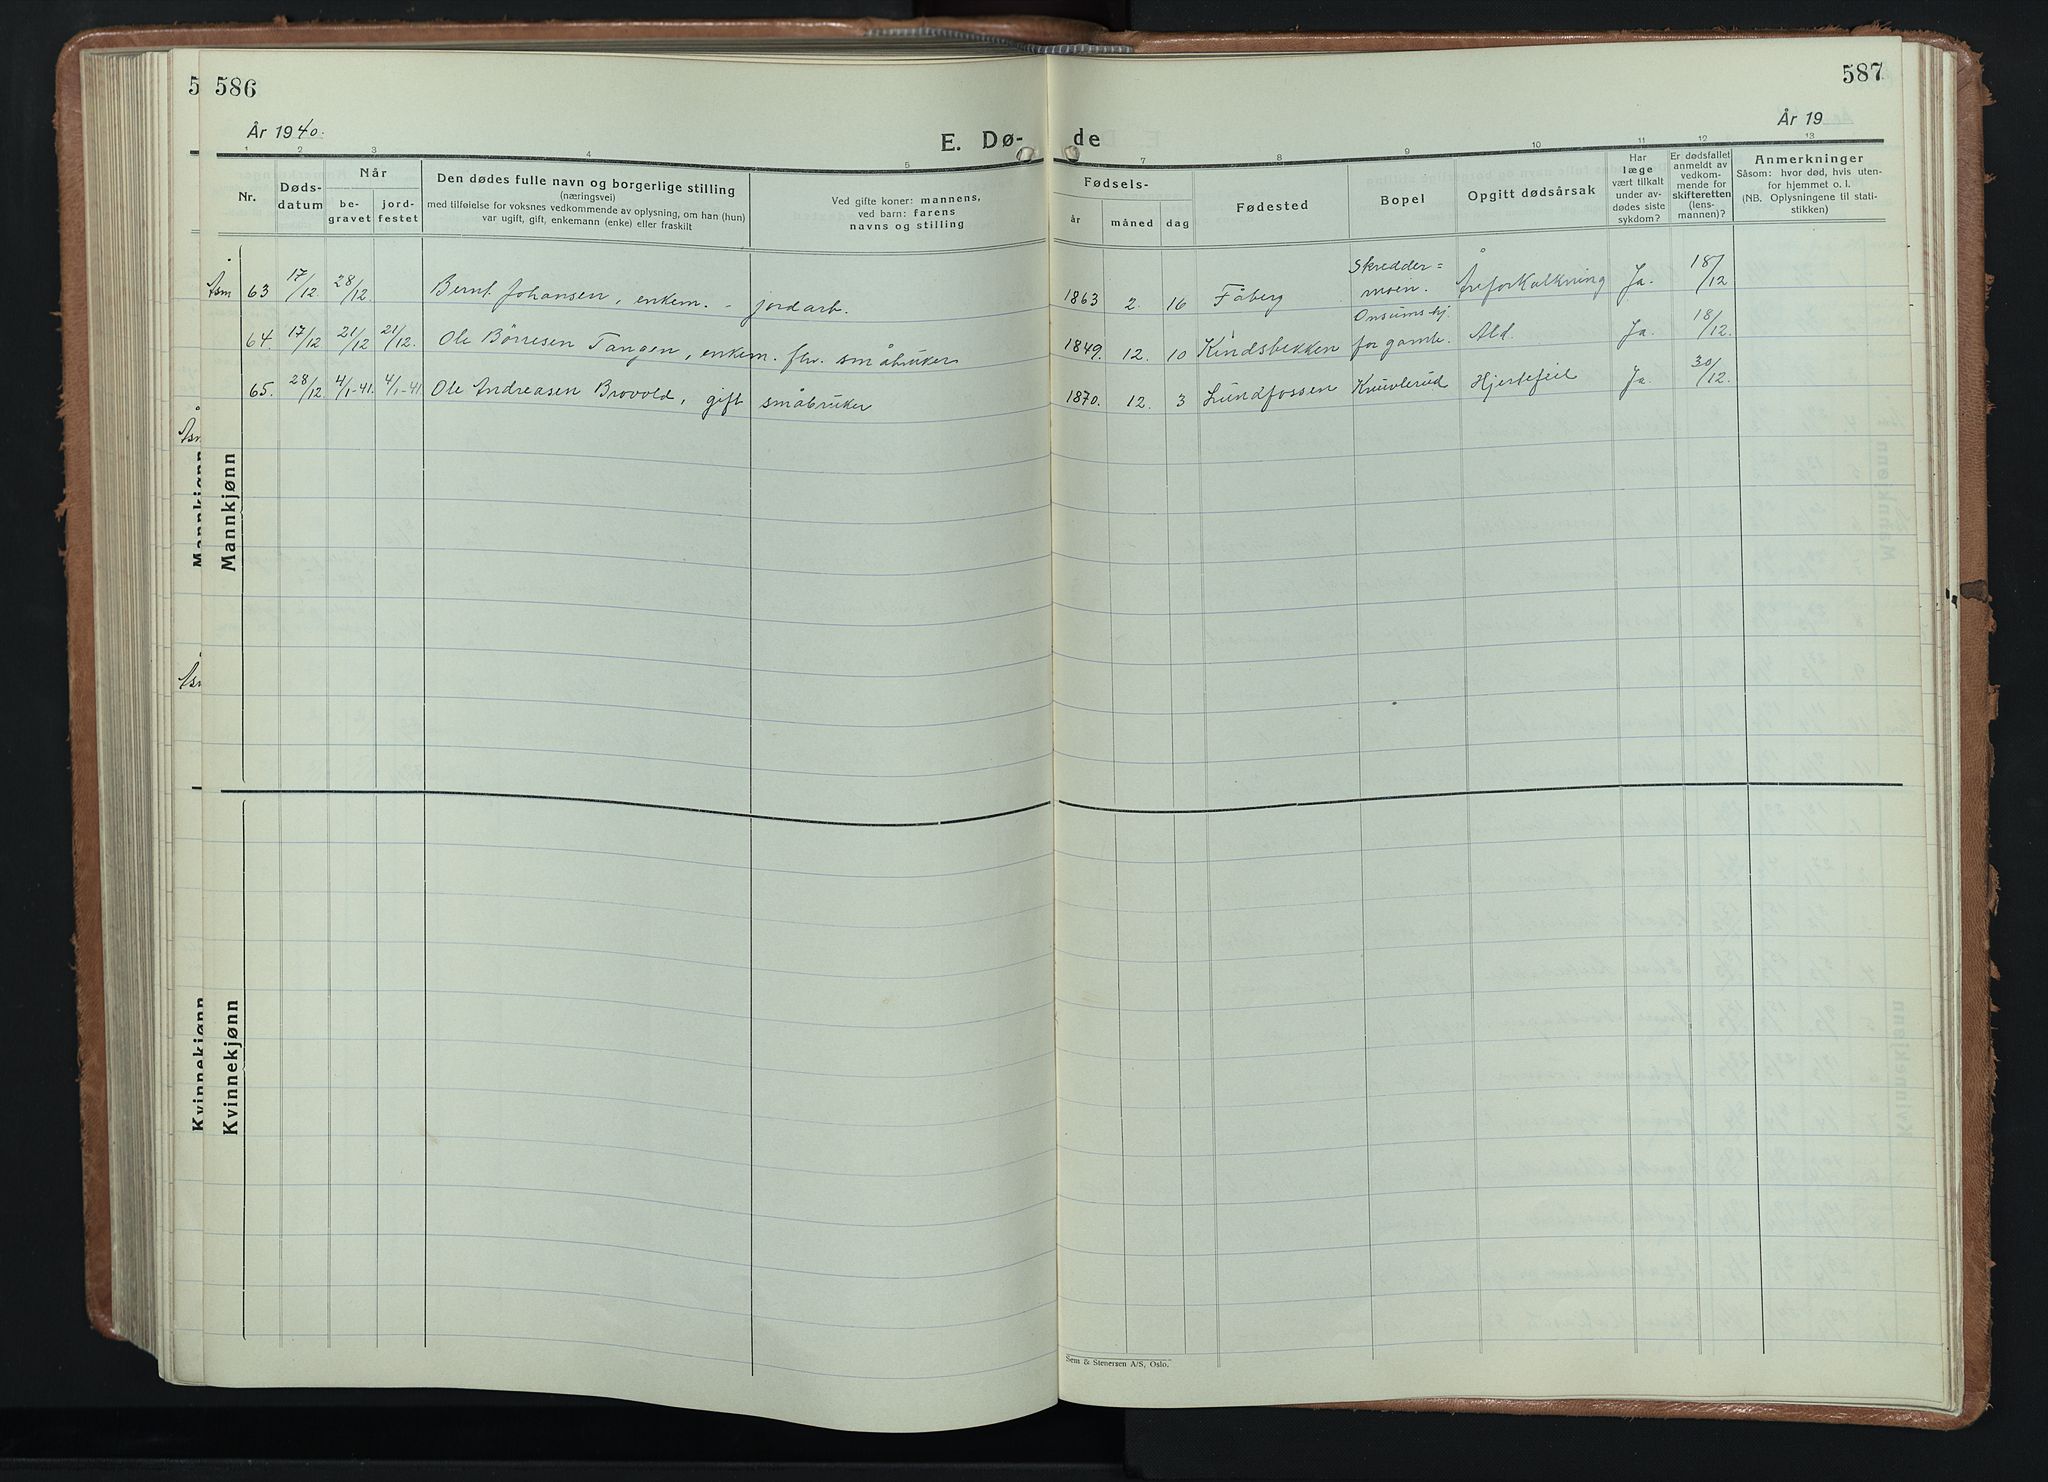 586
År 1940.
E. Dø-
1 2 3 4 5
Nr.
Døds-
datum
Når
be-
gravet
jord-
festet
Den dødes fulle navn og borgerlige stilling
(næringsvei)
med tilføielse for voksnes vedkommende av oplysning, om han (hun)
var ugift, gift, enkemann (enke) eller fraskilt
Ved gifte koner: mannens,
ved barn: farens
navns og stilling
63 17/12. 28/12. Bernt Johansen, enkem. - jordarb.
64. 17/12 21/12 21/12. Ole Børresen Tangen, enkem. fhv. småbruker
65. 28/12. 4/1-41. 4/1-41. Ole Andreasen Brovold, gift småbruker
Mannkjønn
Kvinnekjønn
5
Mannkjønn
Kvinnekjønn
587
År 19
de
7 8 9 10 11 12 13
Fødsels-
år måned dag
Fødested
Bopel
Opgitt dødsårsak
Har
læge
vært tilkalt
under av-
dødes siste
sykdom?
Er dødsfallet
anmeldt av
vedkom-
mende for
skifteretten
(lens-
mannen)?
Anmerkninger
Såsom: hvor død, hvis uten-
for hjemmet o. l.
(NB. Oplysningene til stati-
stikken)
1863 2. 16 Fåberg Skredder=
moen. Åreforkalkning Ja. 18/12
1849. 12. 10 Kindsbekken Onsumshj.
for gamle. Ald. Ja. 18/12.
1870. 12. 3 Lundfossen Knuvlerud Hjertefeil Ja. 30/12.
Sem & Stenersen A/S, Oslo.